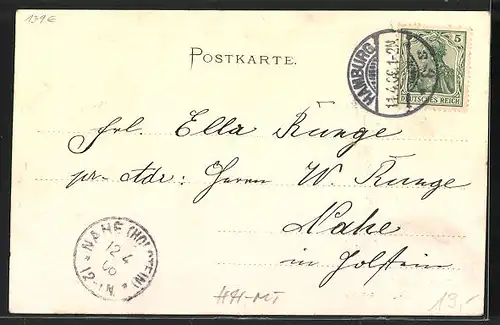 131€
POSTKARTE.
HAMBURG
11.4.06.1-2N.
5
DEUTSCHES REICH
Frl. Ella Runge
pr. Adr: Herrn W. Runge
Nahe
in Holstein
* NAHE (HOLSTEIN) *
12 4
06
12-1N.
HH-MT
19,-